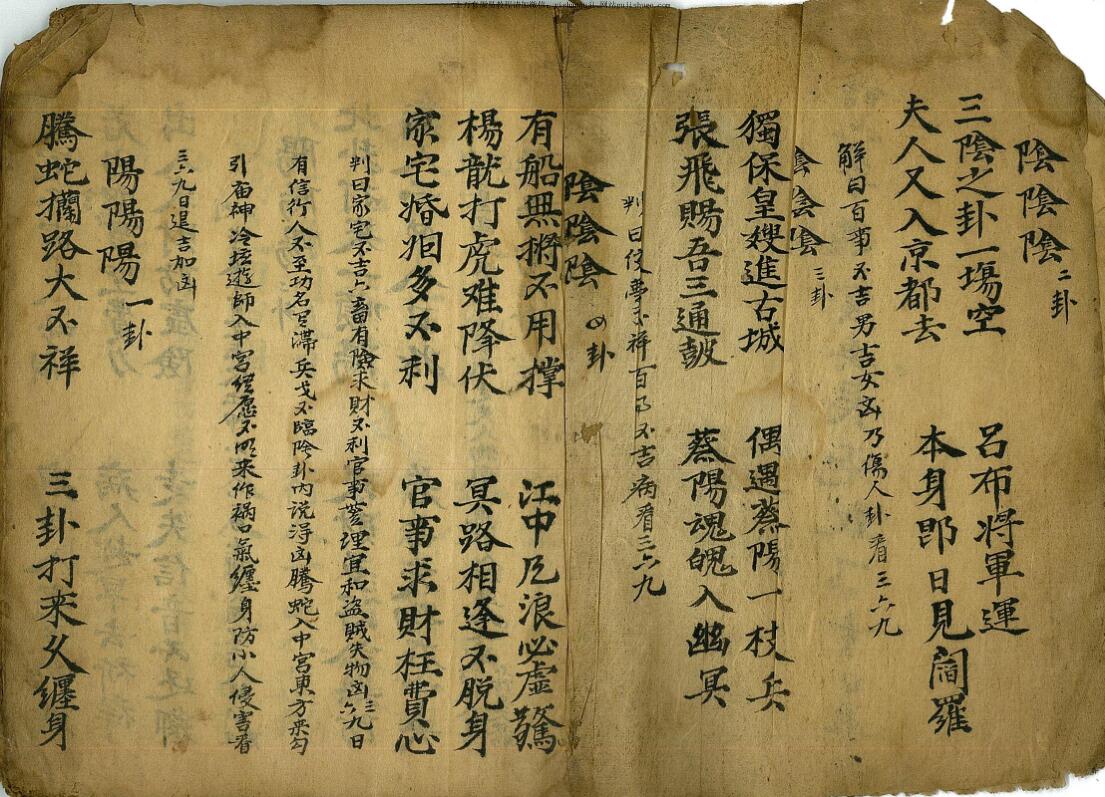 陰陰陰 二卦
三陰之卦一塲空 呂布将軍運
夫人又入京都去 本身即日見閻羅
解曰百事不吉男吉女凶乃傷人卦看三六九
陰陰陰 三卦
獨保皇嫂進古城 偶遇蔡陽一杖兵
張飛賜吾三通鼓 蔡陽魂魄入幽冥
判曰 夢不祥百 不吉病看三六九
陰陰陰 卦
有船無 不用撑 江中 浪必虛驚
楊龍打虎难降伏 冥路相逢不脱身
家宅婚姻多不利 官事求財枉費心
判曰家宅不吉六畜有險求財不利官事 理宜和盗賊失物凶三六九日
有信行人不至功名 滯兵戈不臨陰卦内説得凶騰蛇入中宮東方 勾
引庙神冷坛遊師入中宮 愿不明來作祸口氣纏身防小人侵害看
三六九日退吉加凶
陽陽陽 一卦
騰蛇攔路大不祥 三卦打來久纏身